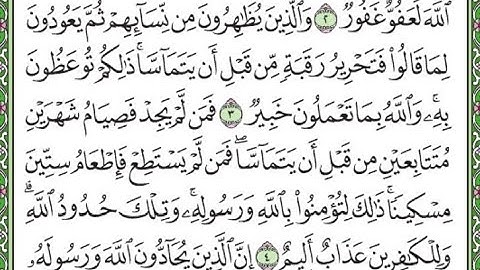 ٱللَّهَ لَعَفُوٌّ غَفُورٌ ٢ وَٱلَّذِينَ يُظَٰهِرُونَ مِن نِّسَآئِهِمۡ ثُمَّ يَعُودُونَ
لِمَا قَالُواْ فَتَحۡرِيرُ رَقَبَةٖ مِّن قَبۡلِ أَن يَتَمَآسَّاۚ ذَٰلِكُمۡ تُوعَظُونَ
بِهِۦۚ وَٱللَّهُ بِمَا تَعۡمَلُونَ خَبِيرٞ ٣ فَمَن لَّمۡ يَجِدۡ فَصِيَامُ شَهۡرَيۡنِ
مُتَتَابِعَيۡنِ مِن قَبۡلِ أَن يَتَمَآسَّاۖ فَمَن لَّمۡ يَسۡتَطِعۡ فَإِطۡعَامُ سِتِّينَ
مِسۡكِينٗاۚ ذَٰلِكَ لِتُؤۡمِنُواْ بِٱللَّهِ وَرَسُولِهِۦۚ وَتِلۡكَ حُدُودُ ٱللَّهِۗ
وَلِلۡكَٰفِرِينَ عَذَابٌ أَلِيمٌ ٤ إِنَّ ٱلَّذِينَ يُحَآدُّونَ ٱللَّهَ وَرَسُولَهُۥ